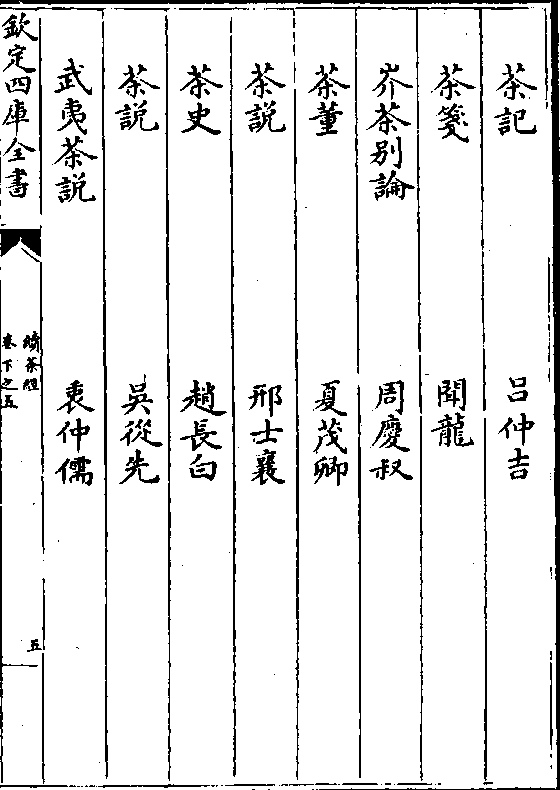 茶記 吕仲吉
茶箋 聞龍
岕茶别論 周慶叔
茶董 夏茂卿
茶説 邢士襄
茶史 趙長白
茶説 吳從先
武夷茶説 袠仲儒
欽定四庫全書
續茶經
卷下之五
五